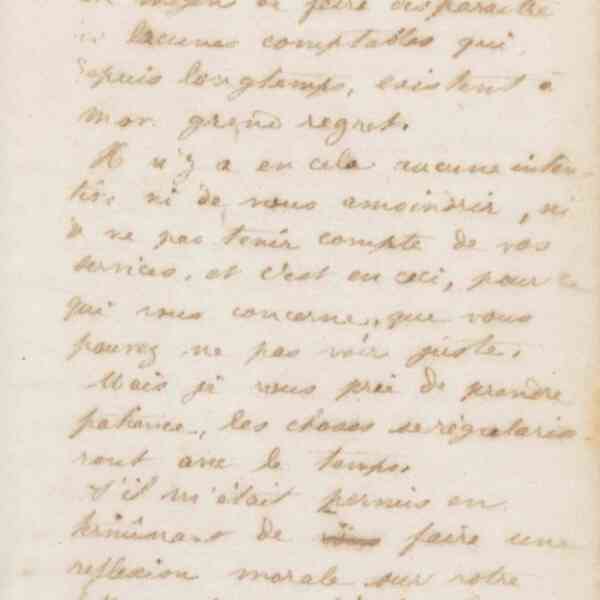 moyen de faire disparaître
lacunes comptables qui,
depuis longtemps, existent à
mon grand regret.
Il n'y a en cela aucune inten-
tion ni de vous amoindrir, ni
de ne pas tenir compte de vos
services, et c'est en ceci, pour ce
qui vous concerne, que vous
pouvez ne pas voir juste.
Mais je vous prie de prendre
patience, les choses se régularise-
ront avec le temps.
S'il m'était permis en
terminant de faire une
réflexion morale sur votre